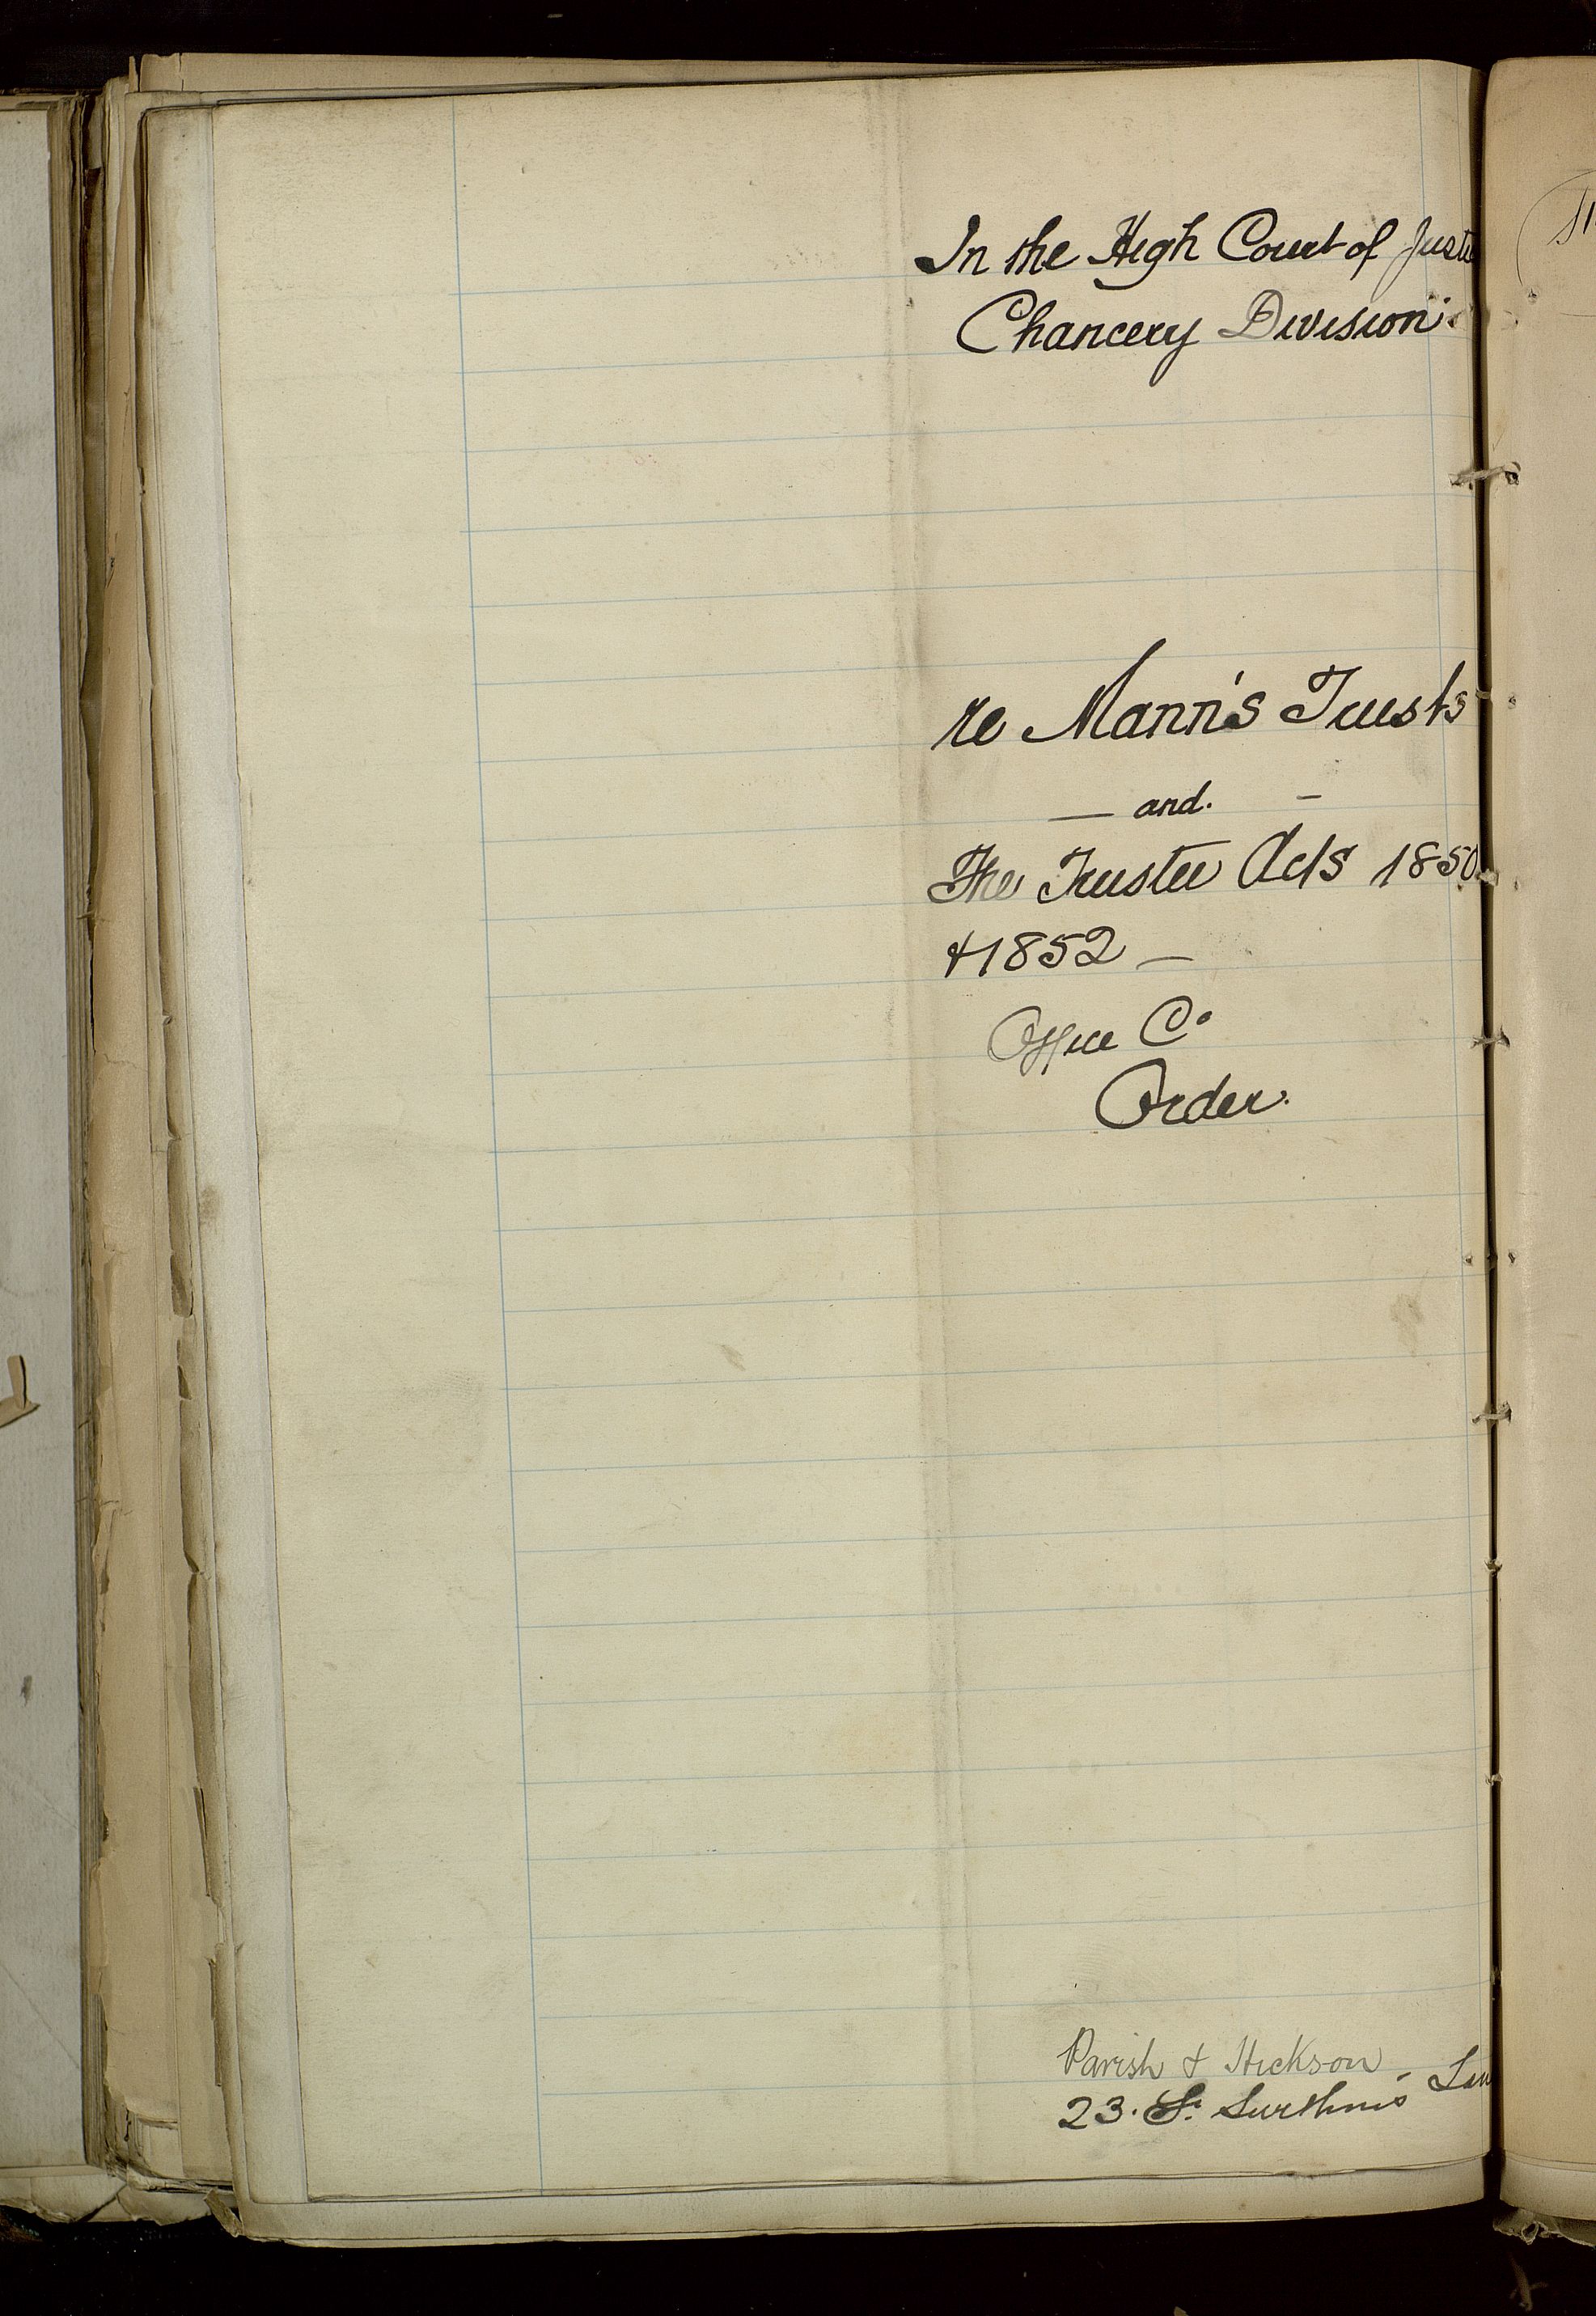 In the High Court of Justi
Chancery Division.
re Mann's Trusts
— and. —
The Trustee Acts 1850
& 1852 —
Office Co
Order.
Parish & Hickson
23. St. Swithin's Lan